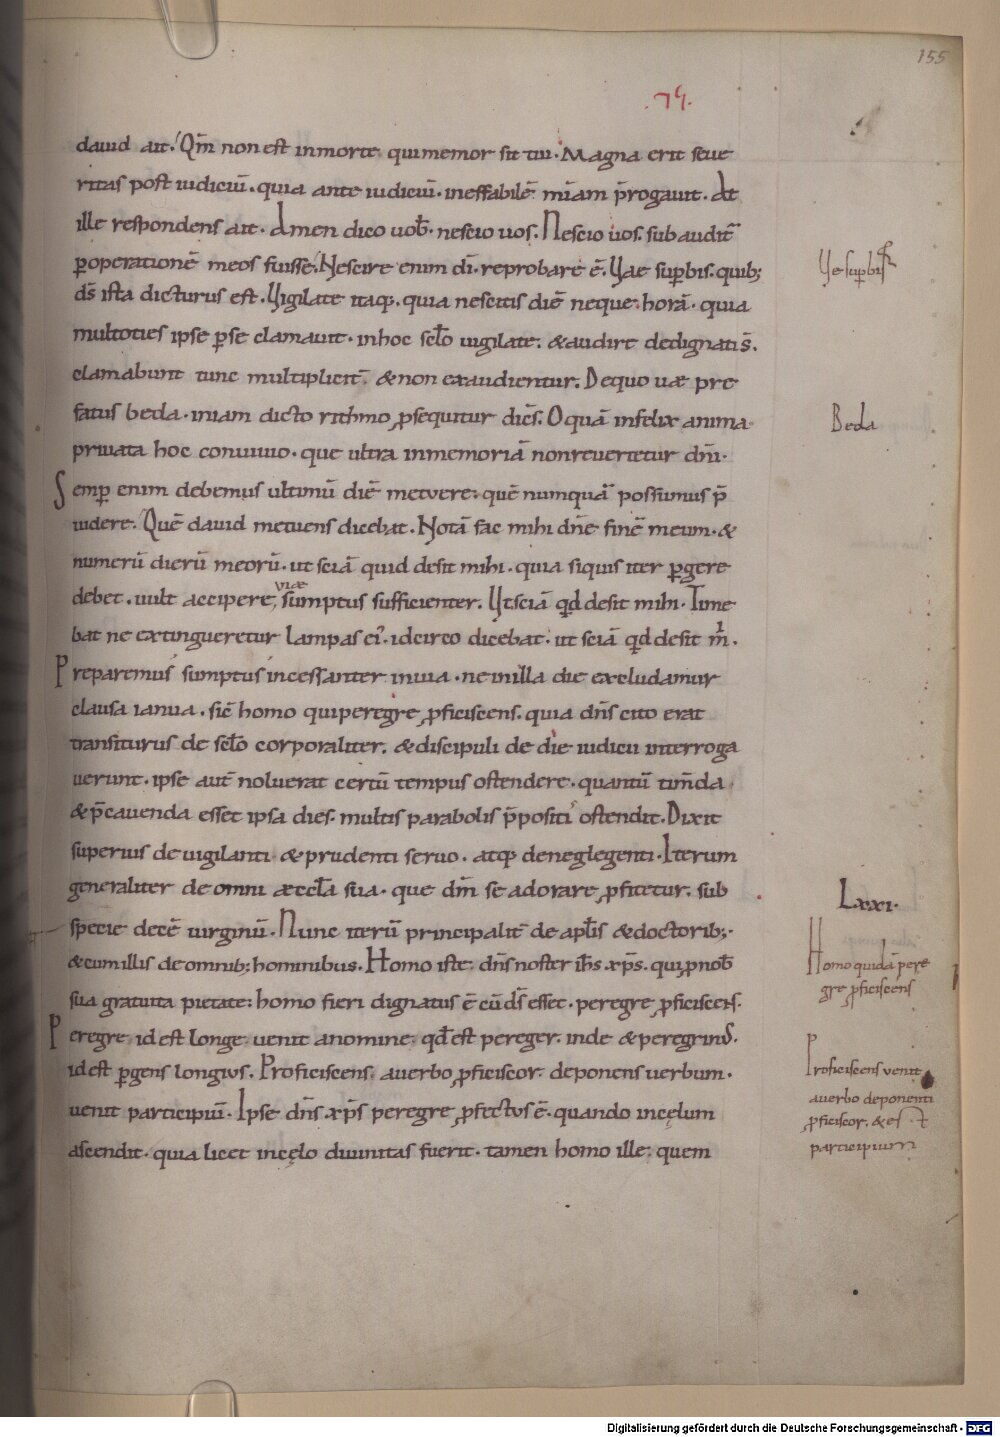 155
dauid ait. Qm̄ non est inmorte qui memor sit tui. Magna erit seue
ritas post iudiciū. quia ante iudiciū. ineffabilē mīam p̄rogauit. At
ille respondens ait. Amen dico uob̄. nescio uos. Nescio uos. subaudit̄
ꝑoperationē meos fuisse. Nescire enim dī. reprobare ē. Uae suꝑbis. quib;
Ue suꝑbis
ds̄ ista dicturus est. Uigilate itaq;. quia nescitis diē neque horā. quia
multoties ipse ꝑse clamauit. inhoc sc̄lo uigilate. &audire dedignatis̄.
clamabunt tunc multiplicit̄. &non exaudientur. Dequo uæ pre
fatus beda. iniam dicto rithmo ꝓsequitur dicē̄s. O quā infelix anima
Beda
priuata hoc conuiuio. que ultra inmemoriā nonreuertetur dn̄i.
Semꝑ enim debemus ultimū diē metuere. quē numquā possumus p̄
uidere. Quē dauid metuens dicebat. Notā fac mihi dn̄e finē meum. &
numerū dierū meorū. ut sciā quid desit mihi. quia siquis iter ꝑgere
debet. uult accipere uiæ sumptus sufficienter. Ut sciā qd̄ desit mihi. Time
bat ne extingueretur lampas ei'. idcirco dicebat. ut sciā qd̄ desit m̄.
Preparemus sumptus incessanter inuia. ne inilla die excludamur
clausa ianua. sic̄ homo quiperegre ꝓficiscens. quia dn̄s cito erat
transiturus de sc̄lo corporaliter. &discipuli de die iudicii interroga
uerunt. ipse aut̄ noluerat certū tempus ostendere. quantū tim̄da
&p̄cauenda esset ipsa dies. multis parabolis p̄positi' ostendit. Dixit
superius de uigilanti &prudenti seruo. atq; deneglegenti. Iterum
generaliter de omni æccl̄a sua. que dm̄ se adorare ꝓfitetur. sub
Lxxi.
specie decē uirginū. Nunc iterū principalit̄ de apl̄is &doctorib;.
&cum illis de omnib; hominibus. Homo iste dn̄s noster ih̄s xp̄s. qui ꝓnob̄
Homo quidā pere
gre ꝓficiscens
sua gratuita pietate homo fieri dignatus ē cū ds̄ esset. peregre ꝓficiscens.
Peregre id est longe uenit anomine qd̄ est pereger. inde &peregrinus.
id est ꝑgens longius. Proficiscens auerbo ꝓficiscor deponens uerbum.
Proficiscens uenit
auerbo deponenti
ꝓficiscor. &est
participium
uenit participiū. Ipse dn̄s xp̄s peregre ꝓfectus ē. quando incęlum
ascendit. quia licet incęlo diuinitas fuerit. tamen homo ille quem
Digitalisierung gefördert durch die Deutsche Forschungsgemeinschaft - DFG